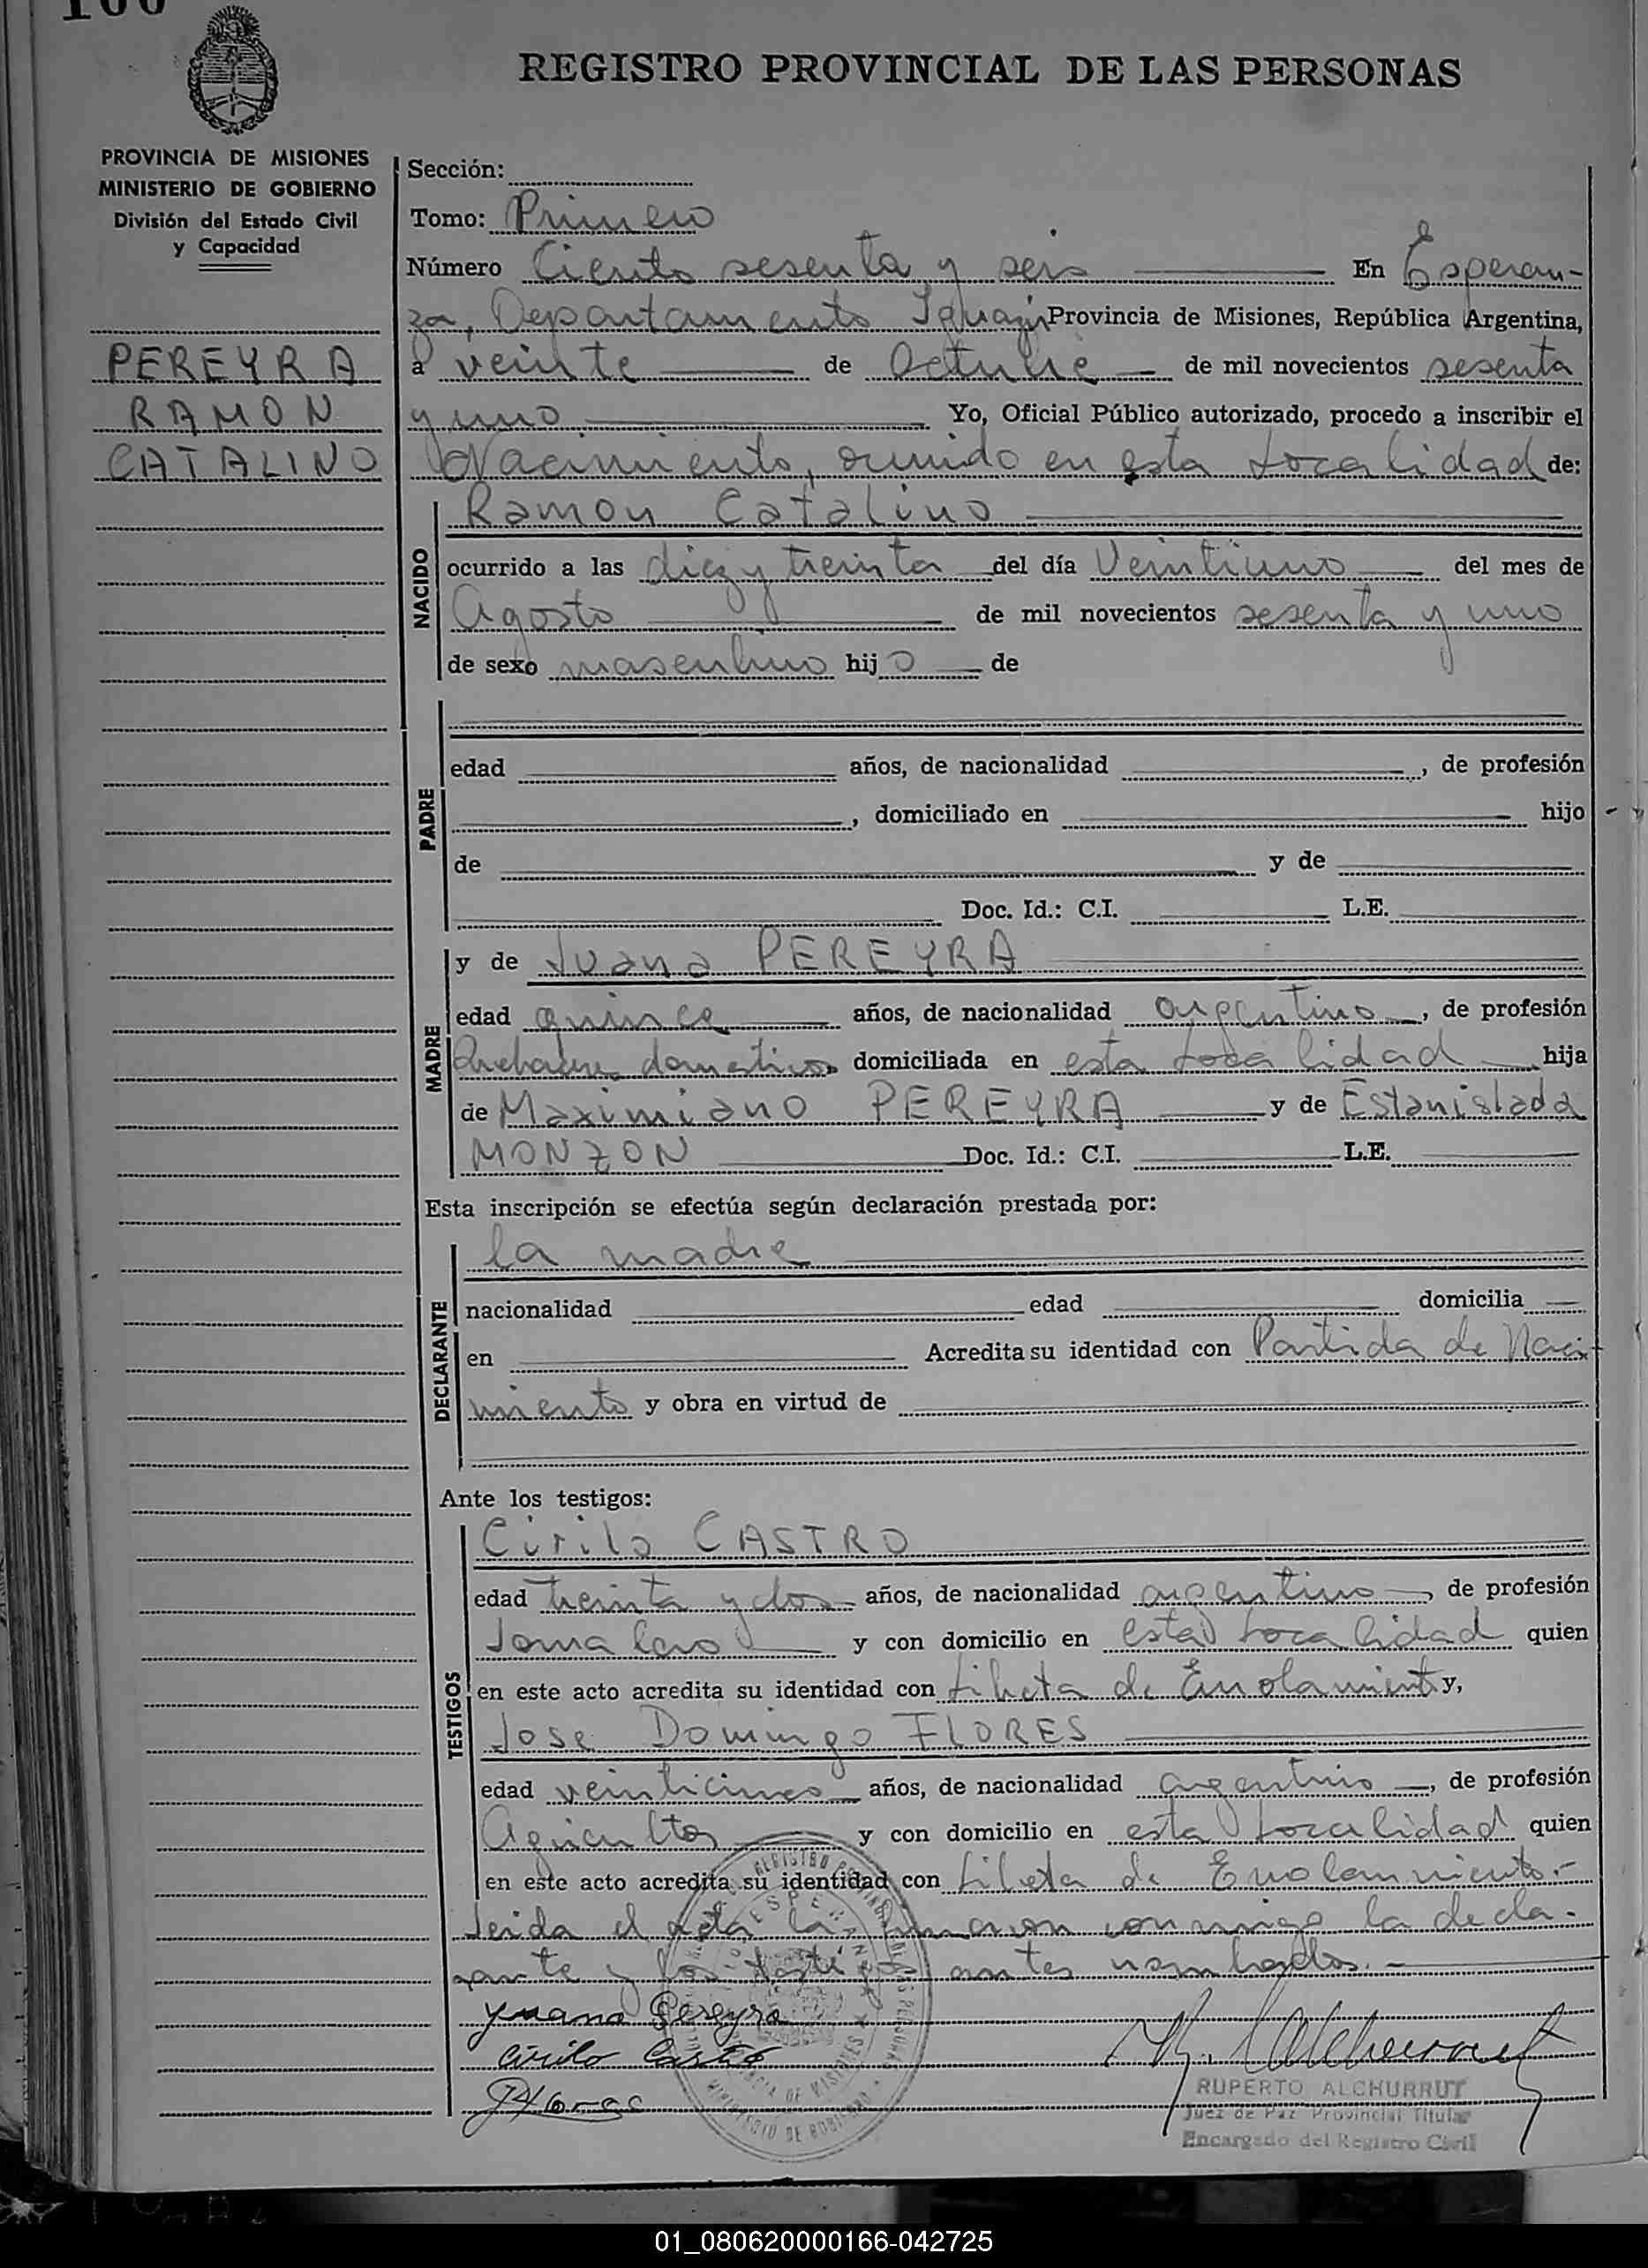 166
REGISTRO PROVINCIAL DE LAS PERSONAS
PROVINCIA DE MISIONES
MINISTERIO DE GOBIERNO
División del Estado Civil
y Capacidad
PEREYRA
RAMON
CATALINO
Sección:
Tomo: Primero
Número Ciento sesenta y seis En Esperan-
za, Departamento Iguazú Provincia de Misiones, República Argentina,
a veinte de Octubre de mil novecientos sesenta
y uno Yo, Oficial Público autorizado, procedo a inscribir el
Nacimiento, ocurrido en esta Localidad de:
NACIDO
Ramon Catalino
ocurrido a las diez y treinta del día Veintiuno del mes de
Agosto de mil novecientos sesenta y uno
de sexo masculino hijo de
PADRE
edad años, de nacionalidad , de profesión
, domiciliado en hijo
de y de
Doc. Id.: C.I. L.E.
MADRE
y de Juana PEREYRA
edad quince años, de nacionalidad argentina, de profesión
Quehaceres domesticos domiciliada en esta Localidad hija
de Maximiano PEREYRA y de Estanislada
MONZON Doc. Id.: C.I. L.E.
Esta inscripción se efectúa según declaración prestada por:
DECLARANTE
la madre
nacionalidad edad domicilia
en Acredita su identidad con Partida de Naci-
miento y obra en virtud de
Ante los testigos:
TESTIGOS
Cirilo CASTRO
edad treinta y dos años, de nacionalidad argentino, de profesión
Jornalero y con domicilio en esta Localidad quien
en este acto acredita su identidad con Libreta de Enrolamiento y,
Jose Domingo FLORES
edad veinticinco años, de nacionalidad argentino, de profesión
Agricultor y con domicilio en esta Localidad quien
en este acto acredita su identidad con Libreta de Enrolamiento.-
Leida el acta la firmaron conmigo la decla-
rante y los testigos antes nombrados.-
Juana Pereyra
Cirilo Castro
JFlores
RUPERTO ALCHURRUT
Juez de Paz Provincial Titular
Encargado del Registro Civil
01_080620000166-042725